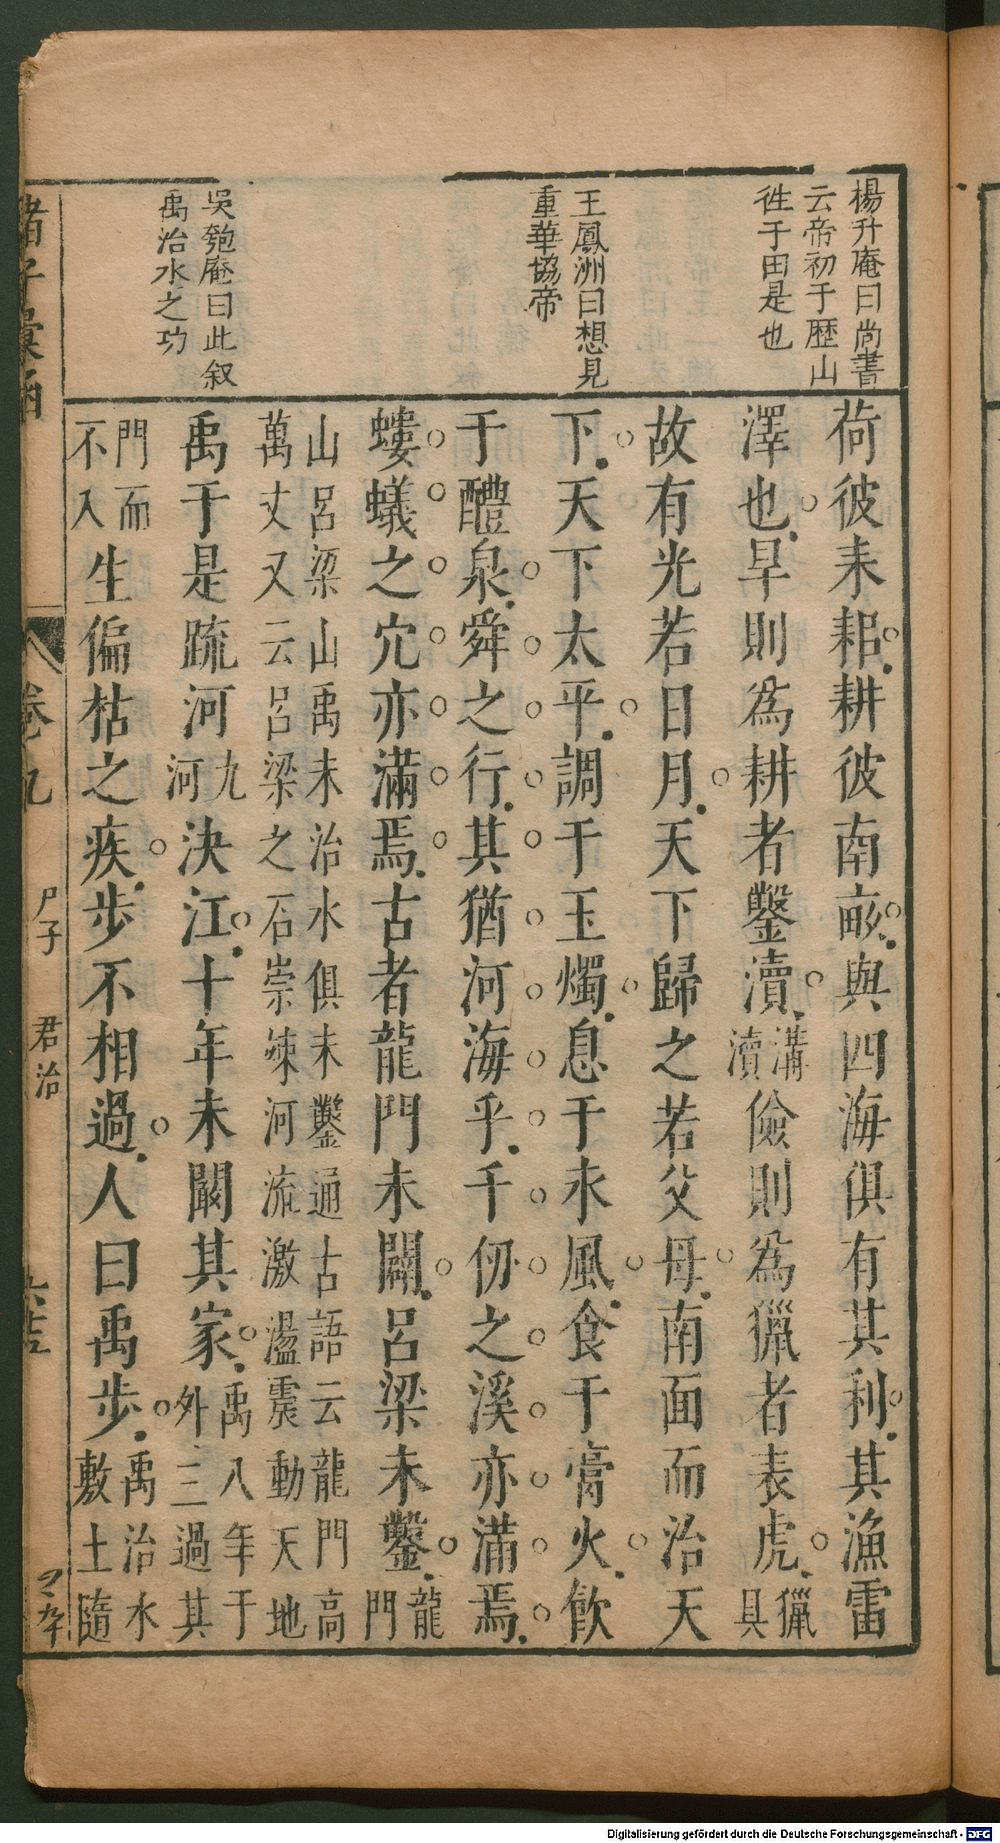 楊升庵曰尚書
云帝初于歷山
徃于田是也
王鳳洲曰想見
重華協帝
吳匏庵曰此叙
禹治水之功
荷彼耒耜耕彼南畝與四海俱有其利其漁雷
澤也旱則為耕者鑿瀆溝瀆儉則為獵者表虎獵具
故有光若日月天下歸之若父母南面而治天
下天下太平調于玉燭息于永風食于膏火飲
于醴泉舜之行其猶河海乎千仞之溪亦滿焉
螻蟻之穴亦滿焉古者龍門未闢呂梁未鑿龍門
山呂梁山禹未治水俱未鑿通古語云龍門高
萬丈又云呂梁之石崇竦河流激濫震動天地
禹于是疏河九河決江十年未闞其家禹八年于外三過其
門而不入生偏枯之疾步不相過人曰禹步禹治水敷土隨
諸子彙函
卷九
尸子
君治
Digitalisierung gefördert durch die Deutsche Forschungsgemeinschaft - DFG